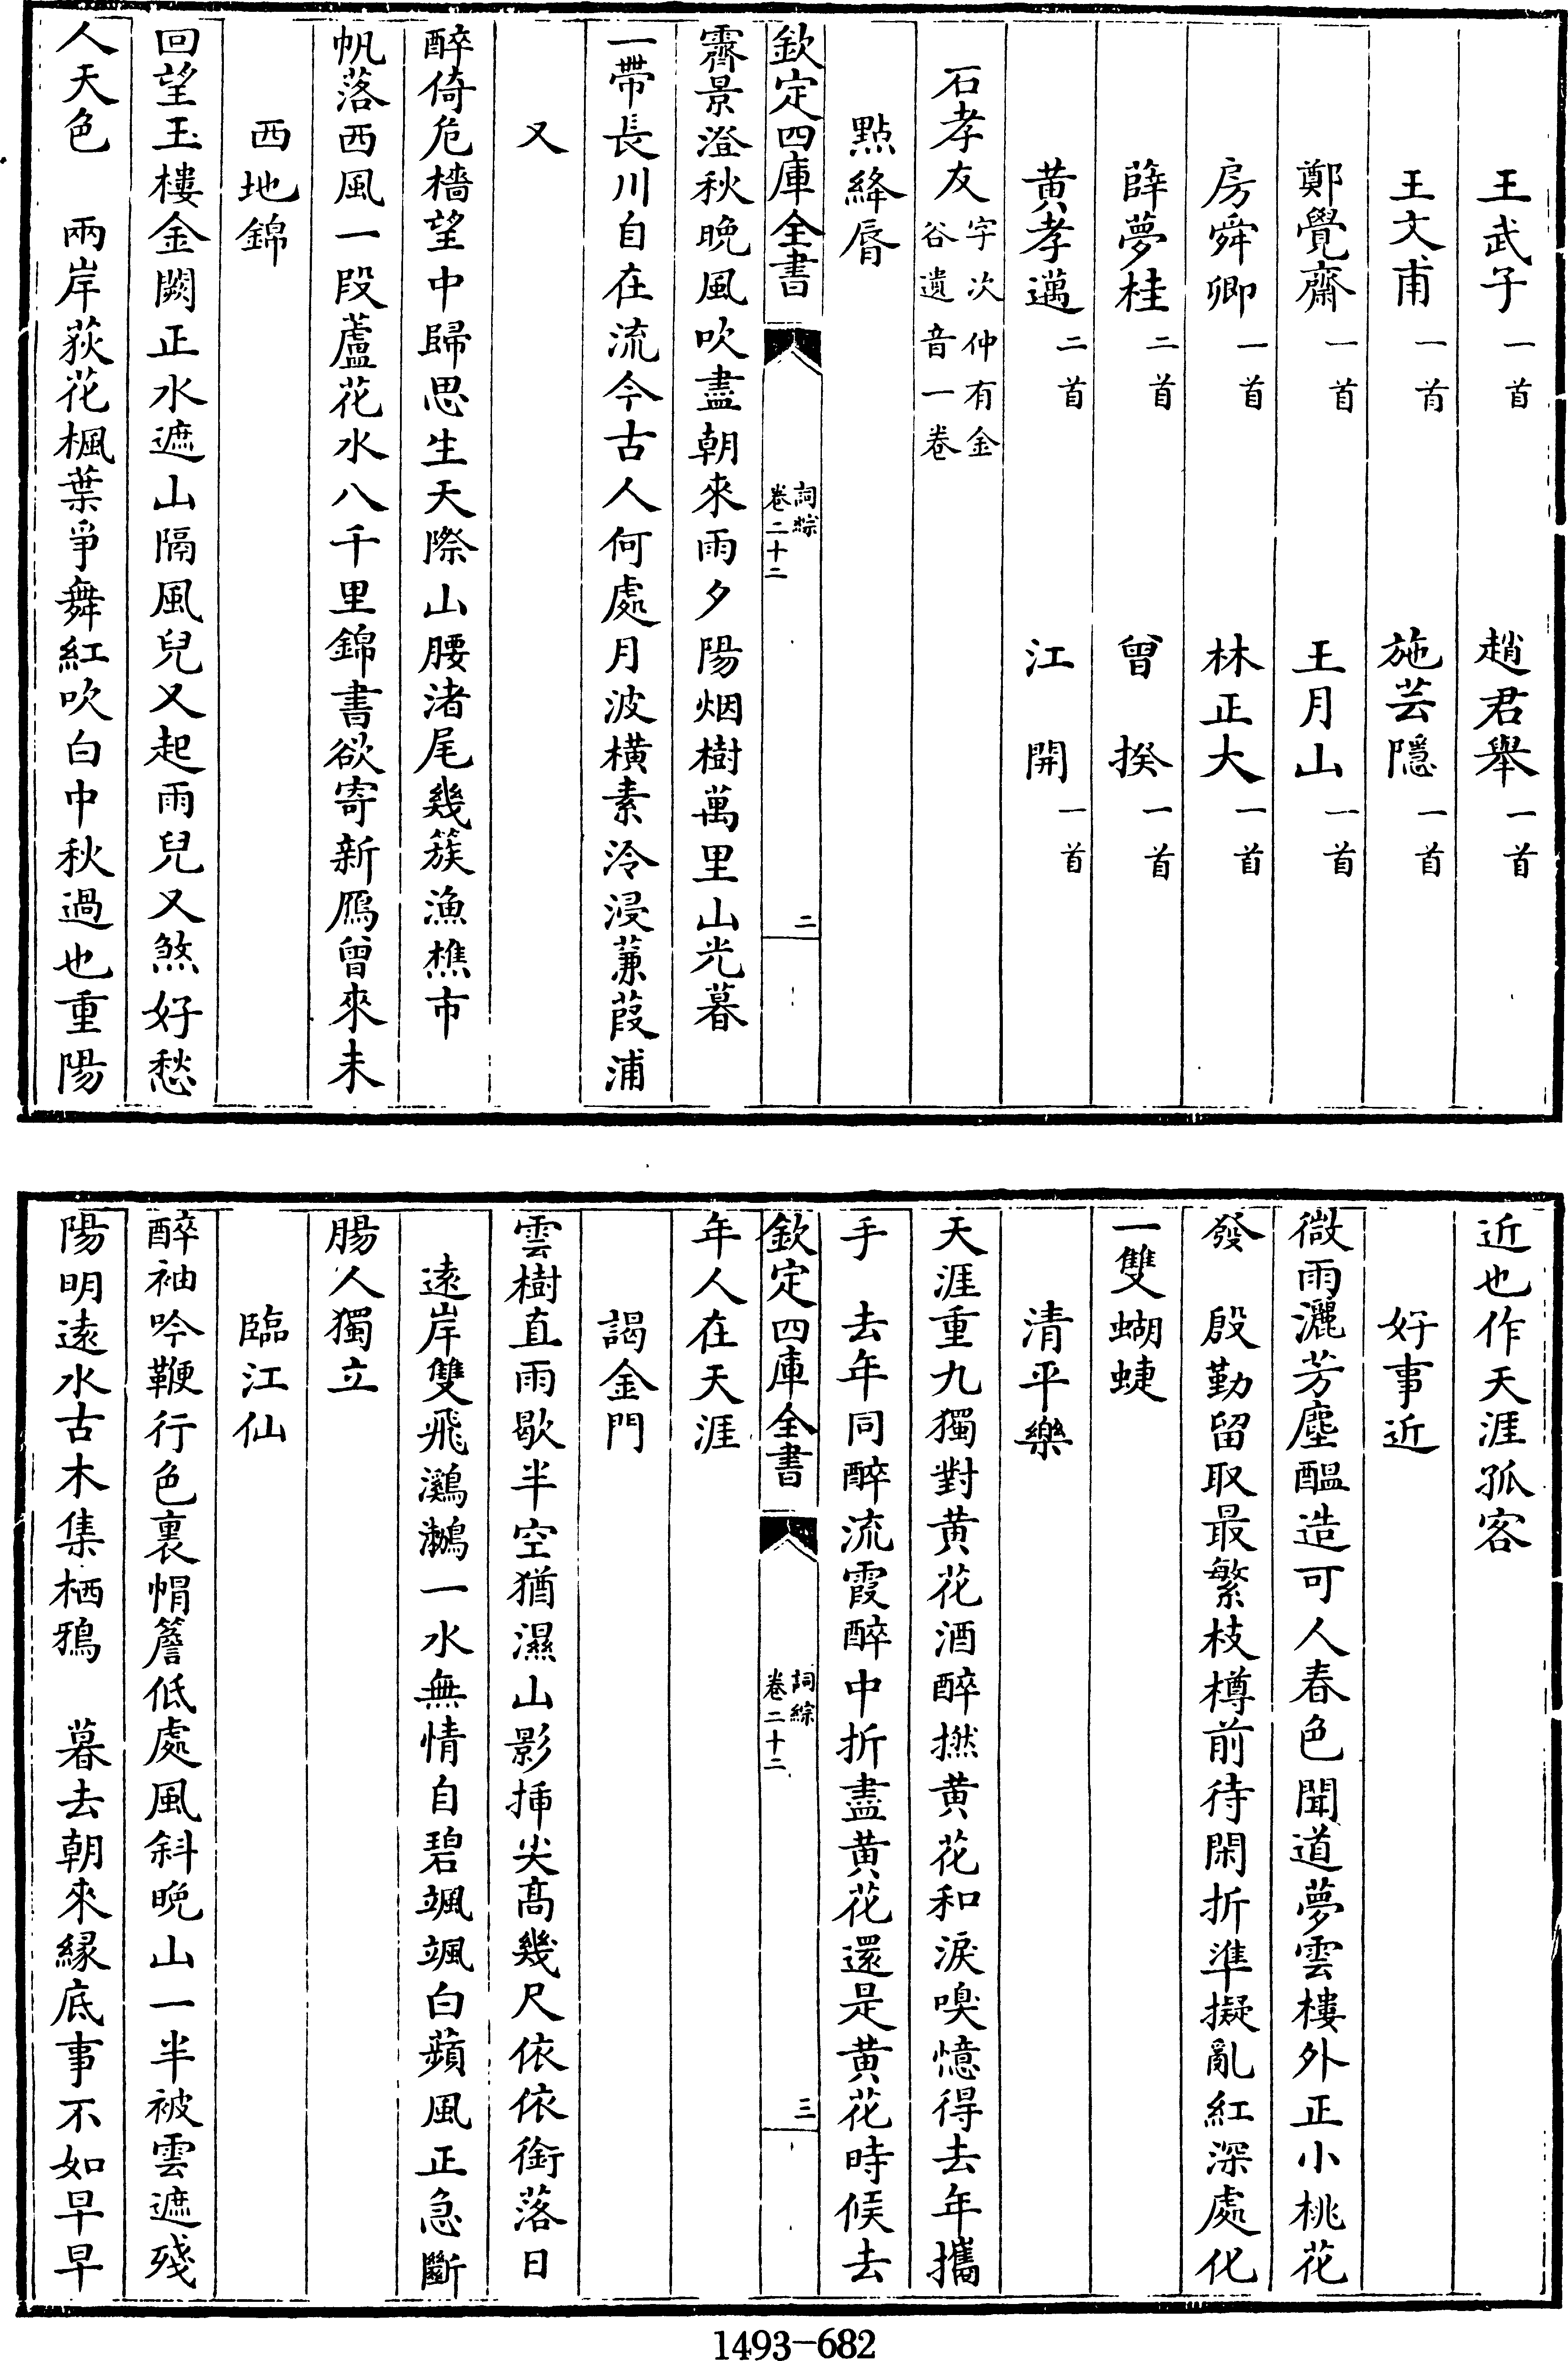 王武子一首　趙君舉一首
王文甫一首　施芸隱一首
鄭覺齋一首　王月山一首
房舜卿一首　林正大一首
薛夢桂二首　曾　揆一首
黄孝邁二首　江　開一首
石孝友字次仲有金谷遺音一卷
點絳脣
欽定四庫全書　詞綜卷二十二　二
霽景澄秋晚風吹盡朝來雨夕陽烟樹萬里山光暮
一帶長川自在流今古人何處月波横素泠浸蒹葭浦
又
醉倚危檣望中歸思生天際山腰渚尾幾簇漁樵市
帆落西風一段蘆花水八千里錦書欲寄新鴈曾來未
西地錦
回望玉樓金闕正水遮山隔風兒又起雨兒又煞好愁
人天色　兩岸荻花楓葉爭舞紅吹白中秋過也重陽
近也作天涯孤客
好事近
微雨灑芳塵醖造可人春色聞道夢雲樓外正小桃花
發　殷勤留取最繁枝樽前待閑折準擬亂紅深處化
一雙蝴蜨
清平樂
天涯重九獨對黄花酒醉撚黄花和淚嗅憶得去年攜
手　去年同醉流霞醉中折盡黄花還是黄花時候去
欽定四庫全書　詞綜卷二十二　三
年人在天涯
謁金門
雲樹直雨歇半空猶濕山影揷尖髙幾尺依依銜落日
遠岸雙飛鸂鶒一水無情自碧颯颯白蘋風正急斷
腸人獨立
臨江仙
醉袖吟鞭行色裏帽簷低處風斜晚山一半被雲遮殘
陽明遠水古木集栖鴉　暮去朝來縁底事不如早早
1493-682